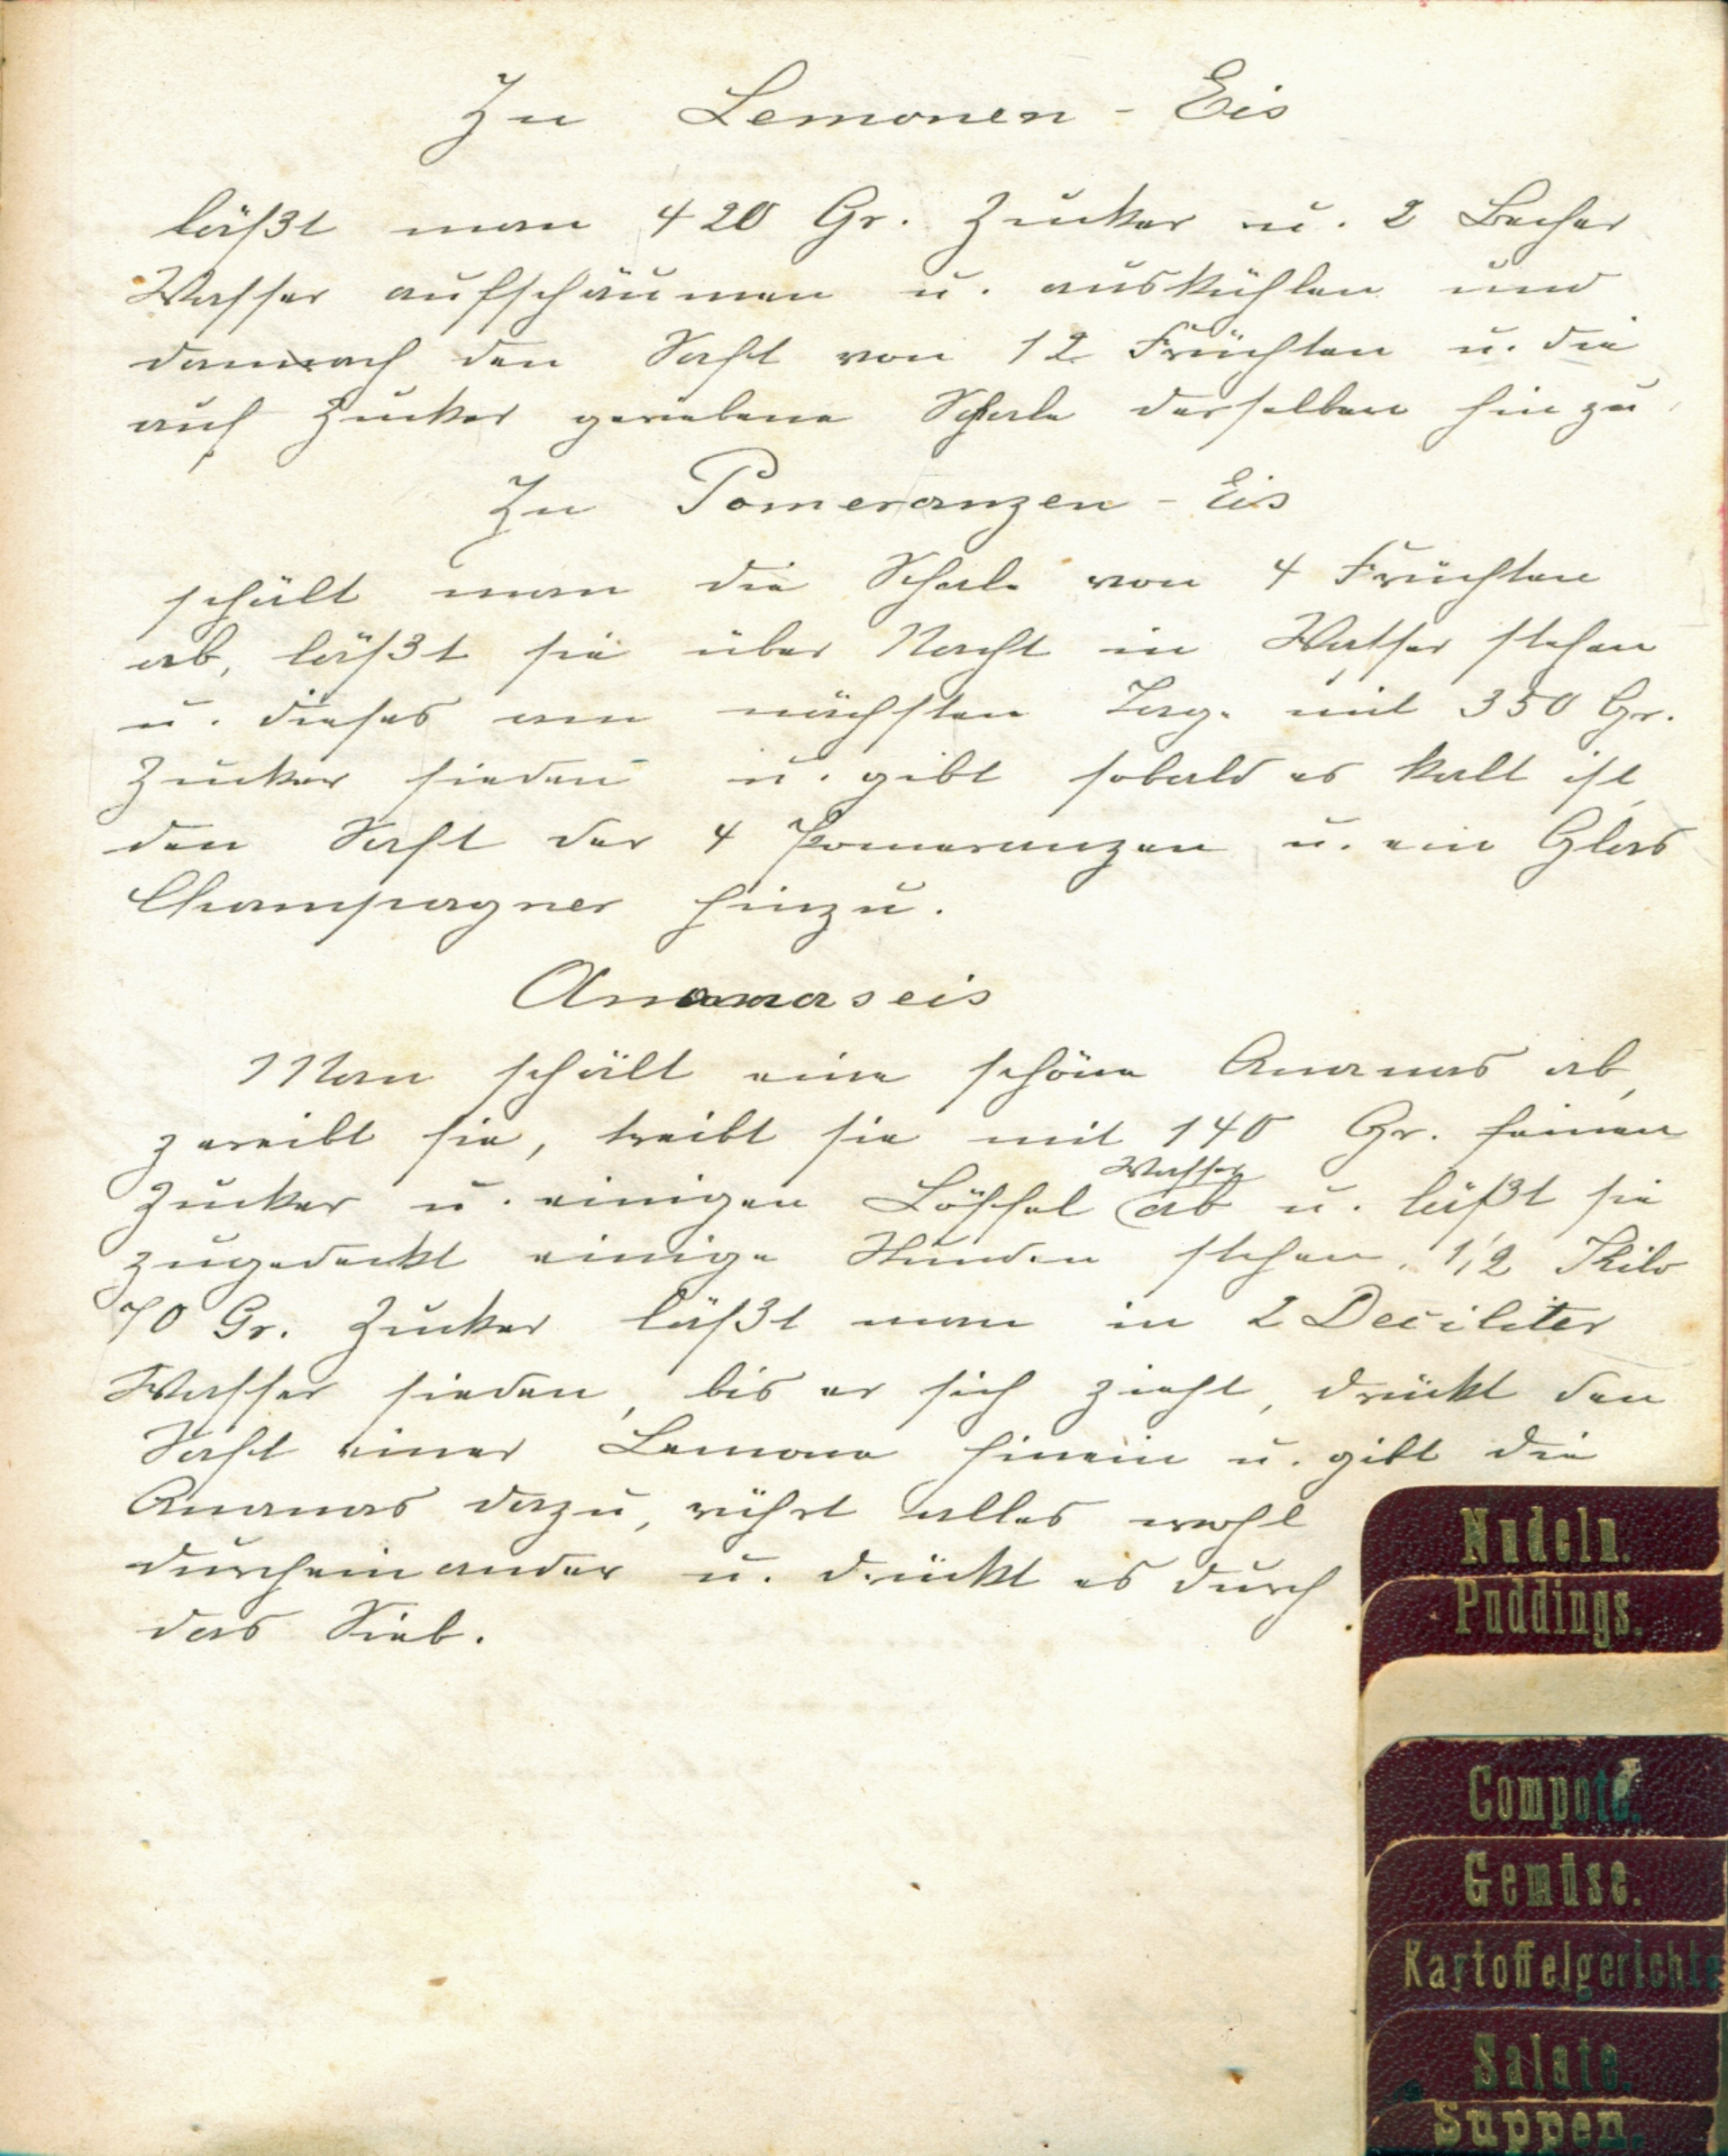 Zu Lemonen - Eis
läßt man 420 Gr. Zucker u. 2 Becher
Wasser aufschäumen u. auskühlen und
dannach den Saft von 12 Früchten u. die
auf Zucker geriebene Schale derselben hinzu.
Zu Pomeranzen - Eis
schält man die Schale von 4 Früchten
ab, läßt sie über Nacht in Wasser stehen
u. dieses am nächsten Tage mit 350 Gr.
Zucker sieden u. gibt sobald es kalt ist,
den Saft der 4 Pomeranzen u. ein Glas
Champagner hinzu.
Ananaseis
Man schält eine schöne Ananas ab,
zereibt sie, treibt sie mit 140 Gr. feinen
Wasser
Zucker u. einigen Löffel ab u. läßt sie
zugedeckt einige Stunden stehen. 1/2 Kilo
70 Gr. Zucker läßt man in 2 Deciliter
Wasser sieden, bis er sich zieht, drückt den
Saft einer Lemone hinein u. gibt die
Ananas dazu, rührt alles wohl
durcheinander u. drückt es durch
das Sieb.
Nudeln.
Puddings.
Compote.
Gemüse.
Kartoffelgerichte
Salate.
Suppen.